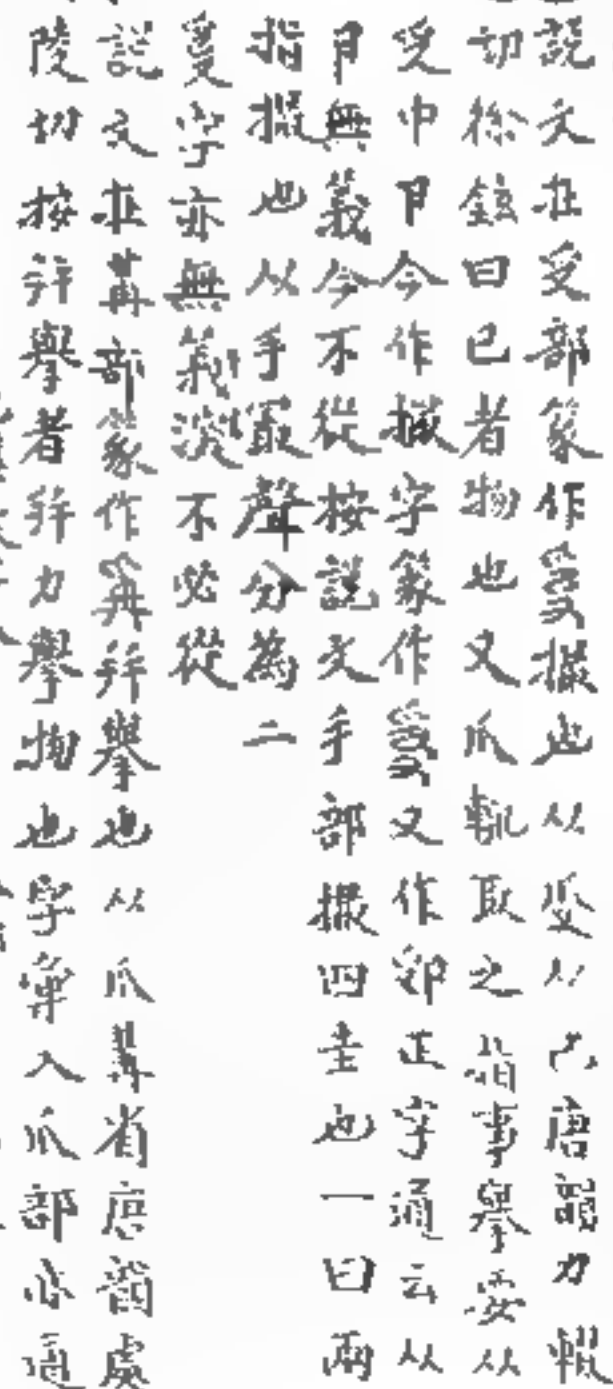 說文在𠬪部篆作𤔌撮也从𠬪从己唐韻力輟
切徐鉉曰已者物也又爪𨋎取之指事舉要从
受中曰今作撮字篆作𤔌又作𨙨正字通云从
曰無義今不從按說文手部撮四圭也一曰兩
指撮也从手最聲分為二
字亦無義淡不必從
說文在冓部篆作爯幷舉也从爪冓省唐韻處
陵切按幷舉者幷力舉物也字彙入爪部亦通